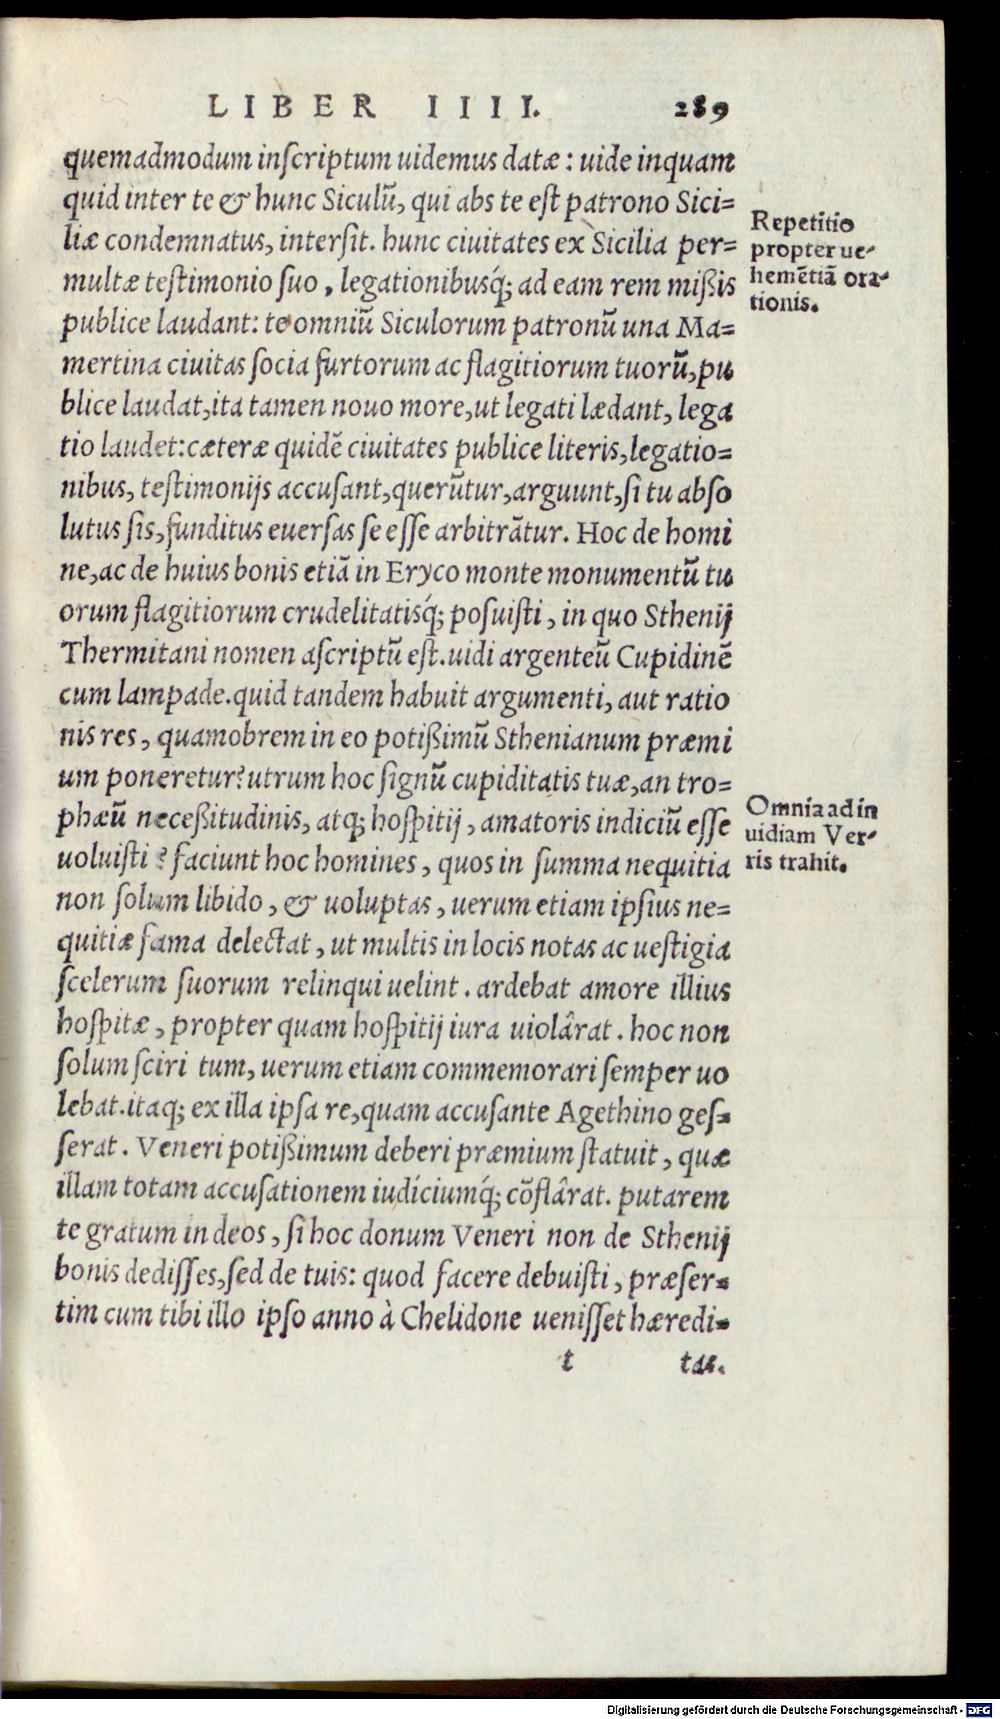 LIBER IIII. 289
quemadmodum inſcriptum uidemus datæ: uide inquam
quid inter te & hunc Siculū, qui abs te eſt patrono Sici=
liæ condemnatus, interſit. hunc ciuitates ex Sicilia per=
multæ teſtimonio ſuo, legationibusq́; ad eam rem mißis
publice laudant: te omniū Siculorum patronū una Ma=
mertina ciuitas ſocia furtorum ac flagitiorum tuorū, pu
blice laudat, ita tamen nouo more, ut legati lædant, lega
tio laudet: cæteræ quidē ciuitates publice literis, legatio=
nibus, teſtimonijs accuſant, querūtur, arguunt, ſi tu abſo
lutus ſis, funditus euerſas ſe eſſe arbitrātur. Hoc de homi
ne, ac de huius bonis etiā in Eryco monte monumentū tu
orum flagitiorum crudelitatisq́; poſuiſti, in quo Sthenij
Thermitani nomen aſcriptū eſt. uidi argenteū Cupidinē
cum lampade. quid tandem habuit argumenti, aut ratio
nis res, quamobrem in eo potißimū Sthenianum præmi
um poneretur? utrum hoc ſignū cupiditatis tuæ, an tro=
phæū neceßitudinis, atq; hoſpitij, amatoris indiciū eſſe
uoluiſti? faciunt hoc homines, quos in ſumma nequitia
non ſolum libido, & uoluptas, uerum etiam ipſius ne=
quitiæ fama delectat, ut multis in locis notas ac ueſtigia
ſcelerum ſuorum relinqui uelint. ardebat amore illius
hoſpitæ, propter quam hoſpitij iura uiolârat. hoc non
ſolum ſciri tum, uerum etiam commemorari ſemper uo
lebat. itaq; ex illa ipſa re, quam accuſante Agethino geſ=
ſerat. Veneri potißimum deberi præmium ſtatuit, quæ
illam totam accuſationem iudiciumq́; cōflârat. putarem
te gratum in deos, ſi hoc donum Veneri non de Sthenij
bonis dediſſes, ſed de tuis: quod facere debuiſti, præſer=
tim cum tibi illo ipſo anno à Chelidone ueniſſet hæredi=
t tas.
Repetitio
propter ue-
hemētiā ora-
tionis.
Omnia ad in
uidiam Ver-
ris trahit.
Digitalisierung gefördert durch die Deutsche Forschungsgemeinschaft - DFG